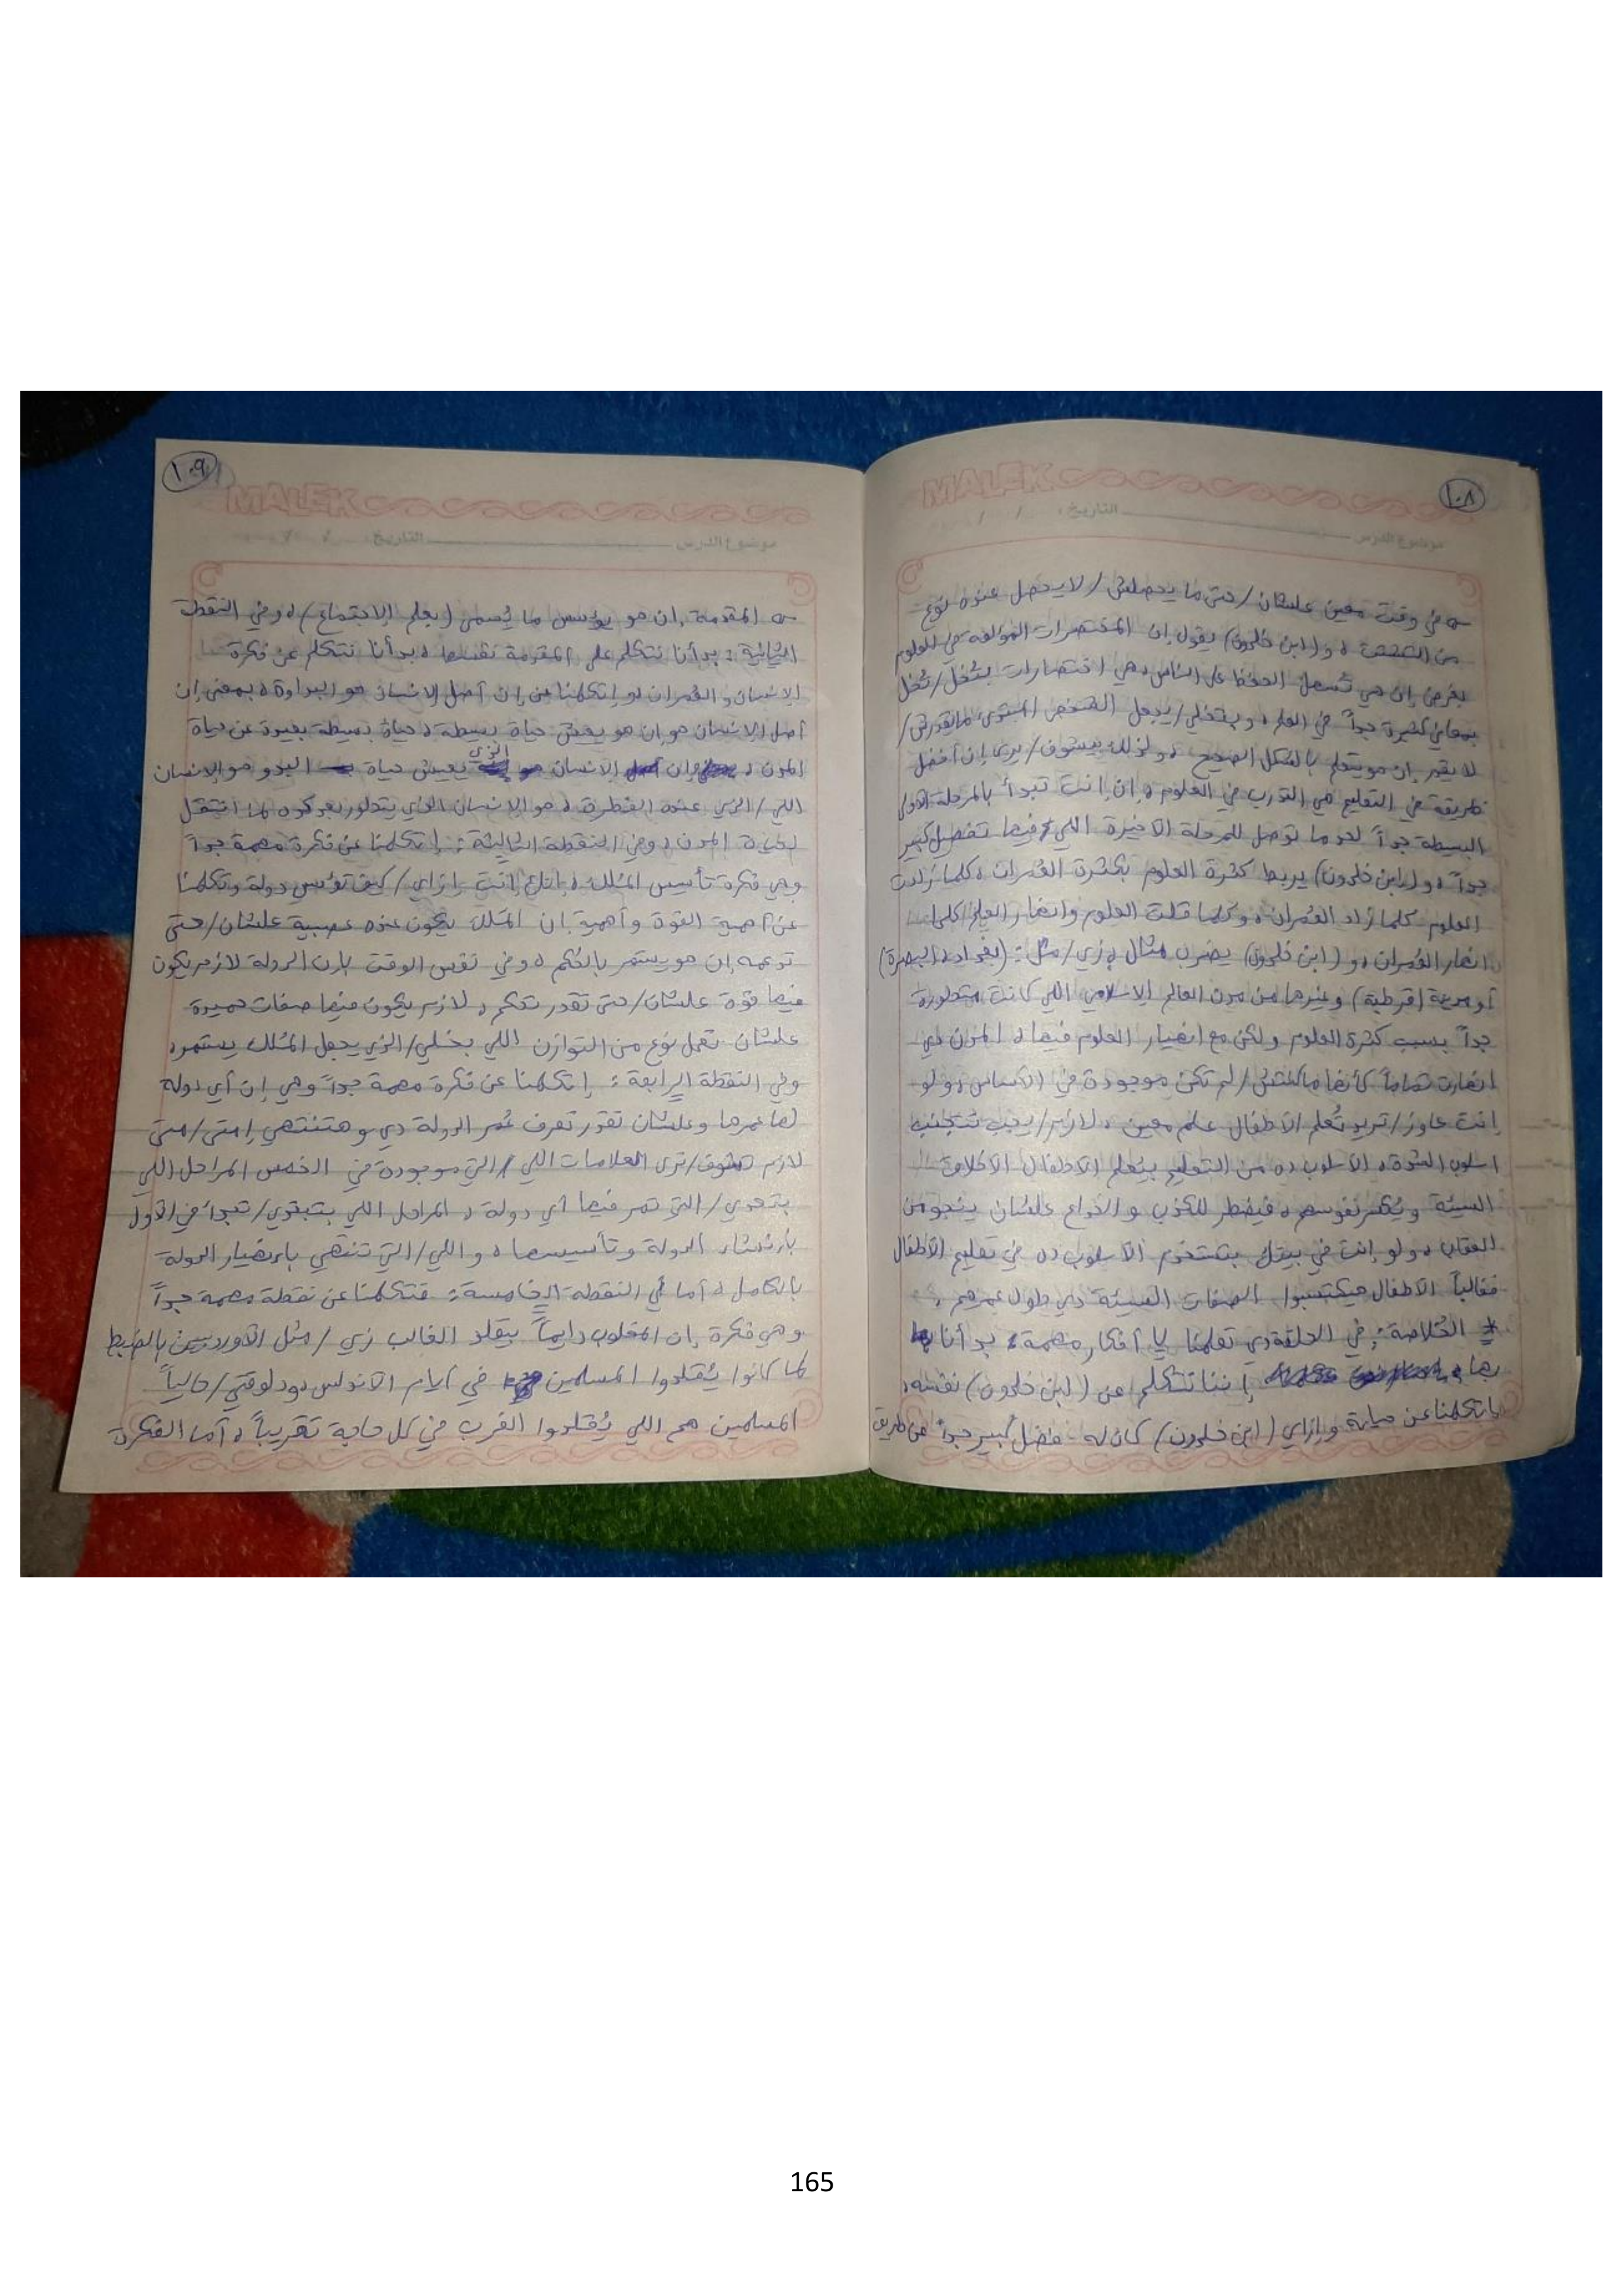 ١٠٨
MALEK
موضوع الدرس التاريخ: / /
في وقت معين علشان/حتى ما يحصلش/لا يحصل عنده نوع
من و(ابن خلدون) يقول إن المختصرات المؤلفة في العلوم
بغرض إن هي تسهل الحفظ على الناس، هي اختصارات بتُخلّ/تُخل
بمعاني كثيرة جداً في العلم، وبتخلي/يجعل الشخص المبتدئ مايقدرش/
لا يقدر إن هو يتعلم بالشكل الصحيح، ولذلك بيشوف/يرى إن أفضل
طريقة في التعليم هي التدرب في العلوم، إن إنت تبدأ بالمرحلة الأولى
البسيطة جداً لحد ما توصل للمرحلة الأخيرة اللي/فيها تفصيل كبير
جداً، و(ابن خلدون) يربط كثرة العلوم بكثرة العُمران، كلما زادت
العلوم كلما زاد العُمران، وكلما قلت العلوم وانهار العلم كلما
انهار العُمران، و(ابن خلدون) يضرب مثال بـ زي/مثل: (بغداد، البصرة)
أو مدينة (قرطبة) وغيرها من مدن العالم الإسلامي اللي كانت متطورة
جداً بسبب كثرة العلوم ولكن مع انهيار العلوم فيها، المدن دي
انهارت تماماً كأنها ماكنتش/لم تكن موجودة في الأساس، ولو
إنت عاوز/تريد تُعلم الأطفال علم معين، لازم/يجب تتجنب
اسلوب الشدة، الأسلوب ده من التعليم بيُعلم الأطفال الأخلاق
السيئة ويُكسر نفوسهم، فيضطر للكذب والخداع علشان ينجو من
العقاب، ولو إنت في بيتك بتستخدم الأسلوب ده في تعليم الأطفال
فغالباً الأطفال هيكتسبوا الصفات السيئة دي طول عمرهم،
* الخُلاصة: في الحلقة دي تعلمنا ٧ أفكار مهمة، بدأنا
بها إننا نتكلم عن (ابن خلدون) نفسه،
اتكلمنا عن حياته وإزاي (ابن خلدون) كان له فضل كبير جداً عن طريق
١٠٩
MALEK
موضوع الدرس التاريخ: / /
المقدمة، إن هو يؤسس ما يُسمى (بعلم الإجتماع)، وفي النقطة
الثانية: بدأنا نتكلم على المقدمة نفسها، بدأنا نتكلم عن فكرة
الإنسان والعُمران لو إتكلمنا عن إن أصل الإنسان هو البداوة، بمعنى إن
أصل الإنسان هو إن هو يعيش حياة بسيطة، حياة بسيطة بعيدة عن حياة
المدن، وإن الإنسان الذي يعيش حياة البدو هو الإنسان
اللي/الذي عنده الفطرة، هو الإنسان الذي يتطور بعد كده لما انتقل
لحياة المدن، وفي النقطة الثالثة: إتكلمنا عن فكرة مهمة جداً
وهي فكرة تأسيس المُلك، إنت إزاي/كيف تؤسس دولة وتكلمنا
عن أهمية القوة وأهمية إن المَلك يكون عنده عصبية علشان/حتى
تدعمه إن هو يستمر بالحُكم، وفي نفس الوقت بإن الدولة لازم يكون
فيها قوة علشان/حتى تقدر تحكم، لازم يكون فيها صفات حميدة
علشان تعمل نوع من التوازن اللي بخلي/الذي يجعل المُلك يستمر،
وفي النقطة الرابعة: إتكلمنا عن فكرة مهمة جداً وهي إن أي دولة
لها عمرها وعلشان تقدر تعرف عُمر الدولة دي وهتنتهي إمتى/متى
لازم تشوف/ترى العلامات اللي/التي موجودة في الخمس المراحل اللي
بتعدي/التي تمر فيها أي دولة، المراحل اللي بتبتدي/تبدأ في الأول
بإنشاء الدولة وتأسيسها، واللي/التي تنتهي بإنهيار الدولة
بالكامل، أما في النقطة الخامسة: فتكلمنا عن نقطة مهمة جداً
وهي فكرة إن المغلوب دايماً بيقلد الغالب زي/مثل الأوربيين بالضبط
لما كانوا يُقلدوا المسلمين في أيام الأندلس، ودلوقتي/حالياً
المسلمين هم اللي يُقلدوا الغرب في كل حاجة تقريباً، أما الفكرة
165